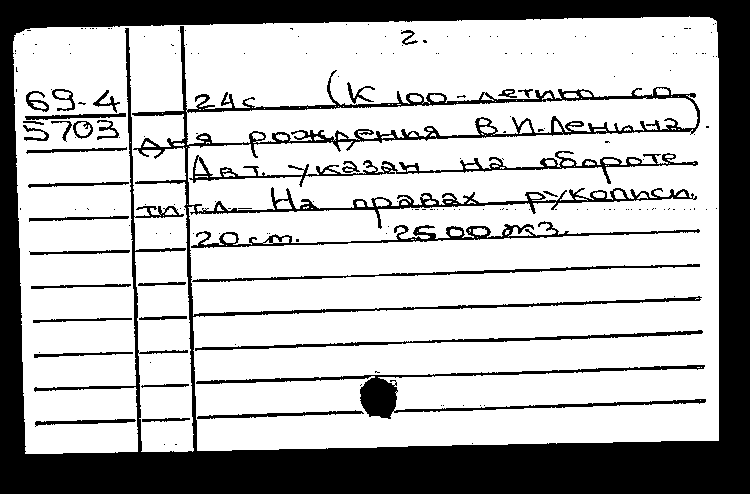 2.
69-4 24с (К 100-летию со
5703 дня рождения В.И.Ленина).
Авт. указан на обороте
тит.л. На правах рукописи.
20 см. 2500 экз.